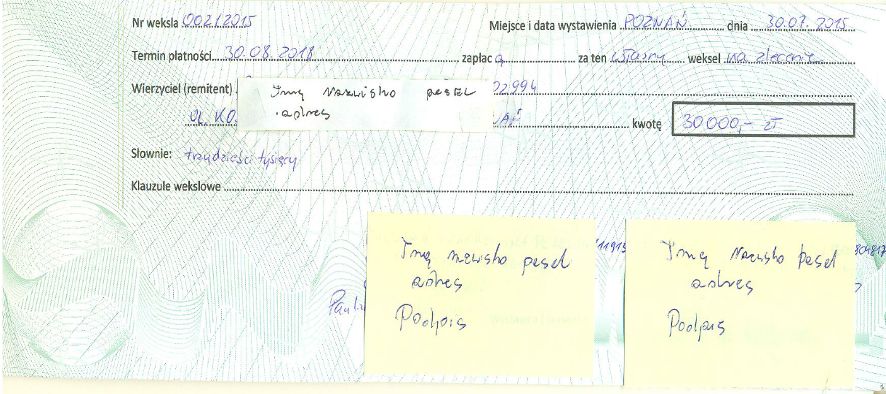 Nr weksla 002/2015 Miejsce i data wystawienia POZNAŃ dnia 30.07.2015
Termin płatności 30.08.2018 zapłacą za ten własny weksel na zlecenie
Wierzyciel (remitent) Imię Nazwisko pesel 22994
adres
ul. KO kwotę 30000,- zł
Słownie: trzydzieści tysięcy
Klauzule wekslowe
Imię nazwisko pesel
adres
Podpis
Imię Nazwisko pesel
adres
Podpis